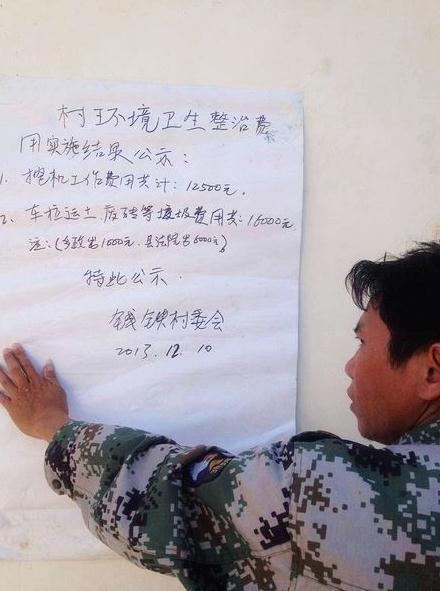 村环境卫生整治费
用实施结果公示:
1. 挖机工作费用共计:12500元.
2、车拉运土、废砖等垃圾费用共:16000元
注:(乡政出1000元.县法院出5000元)
特此公示.
钱铁村委会
2013.12.10